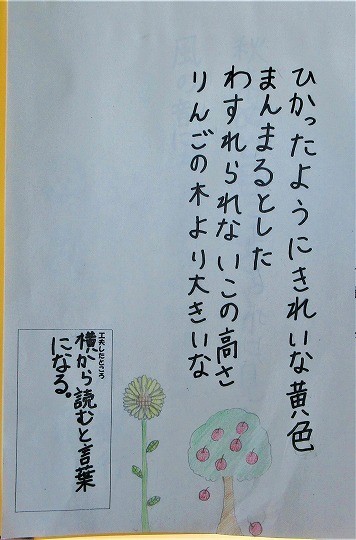 ひかったようにきれいな黄色
まんまるとした
わすれられないこの高さ
りんごの木より大きいな
工夫したところ
横から読むと言葉
になる。